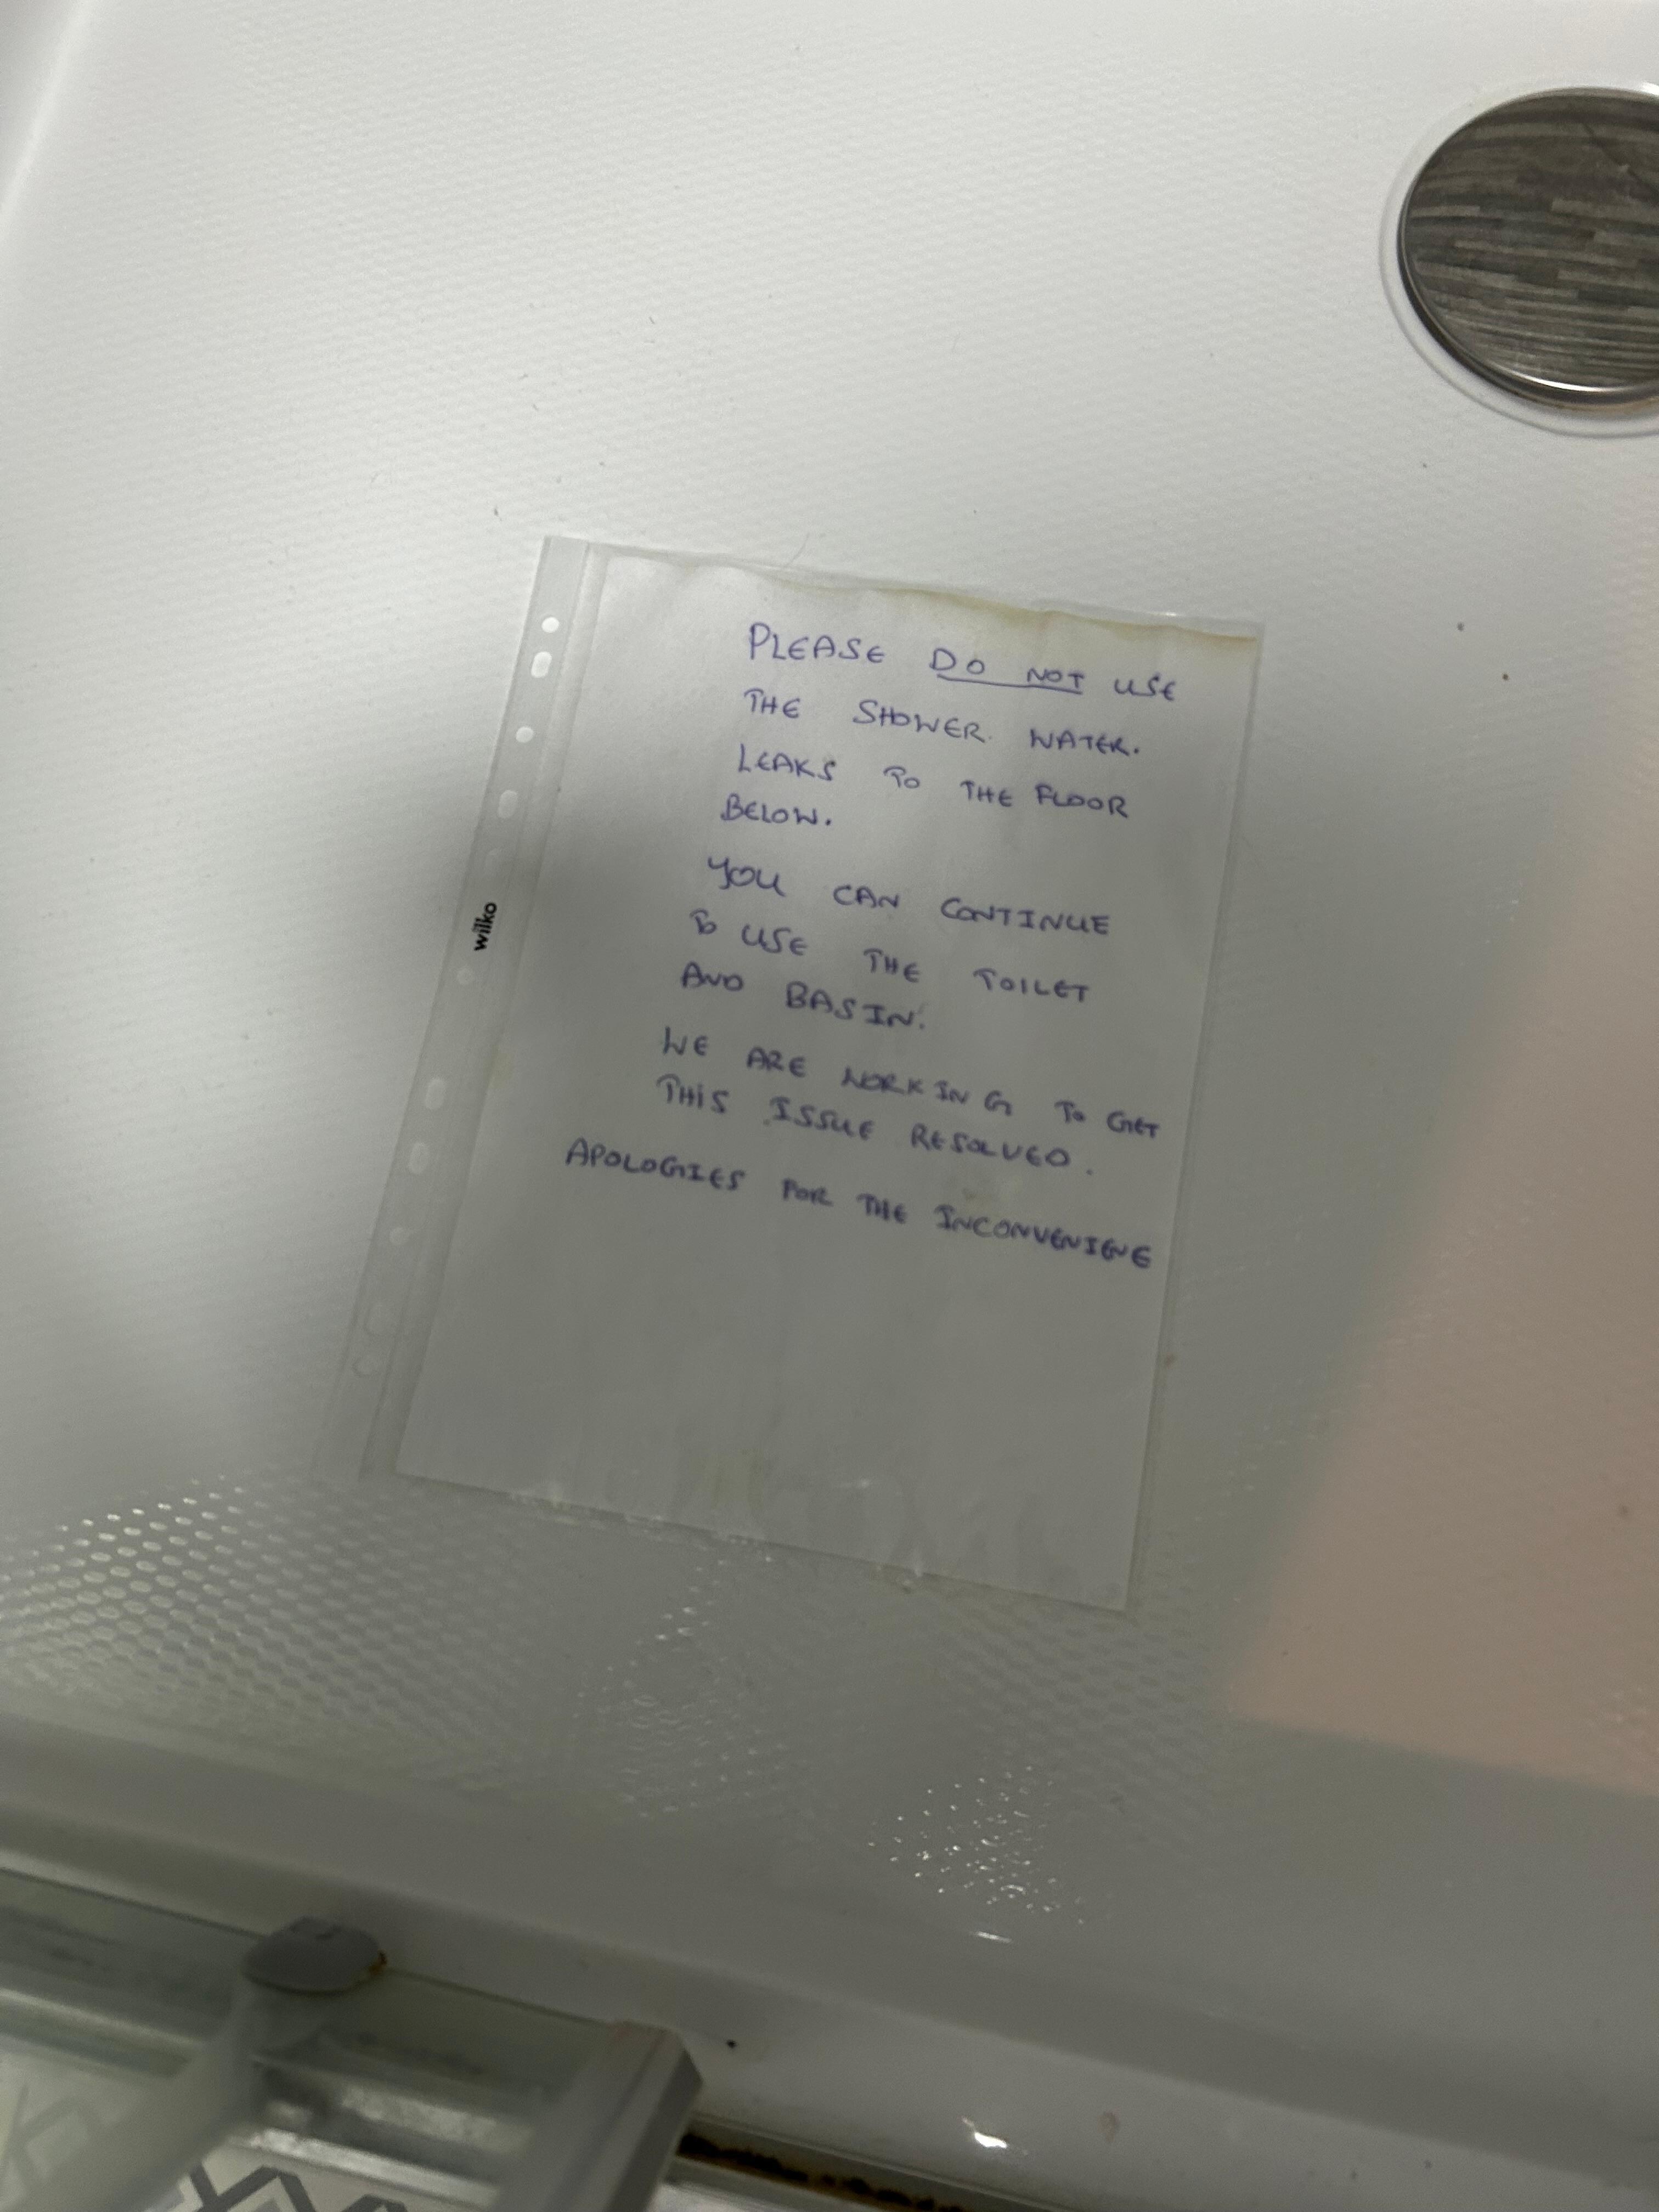 PLEASE DO NOT USE
THE SHOWER. WATER.
LEAKS TO THE FLOOR
BELOW.
YOU CAN CONTINUE
TO USE THE TOILET
AND BASIN.
WE ARE WORKING TO GET
THIS ISSUE RESOLVED.
APOLOGIES FOR THE INCONVENIENE
wilko